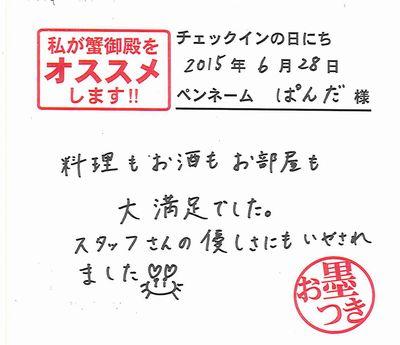 私が蟹御殿を
オススメ
します!!
チェックインの日にち
2015年 6月 28日
ペンネーム ぱんだ 様
料理もお酒もお部屋も
大満足でした。
スタッフさんの優しさにもいやされ
ました
お墨つき